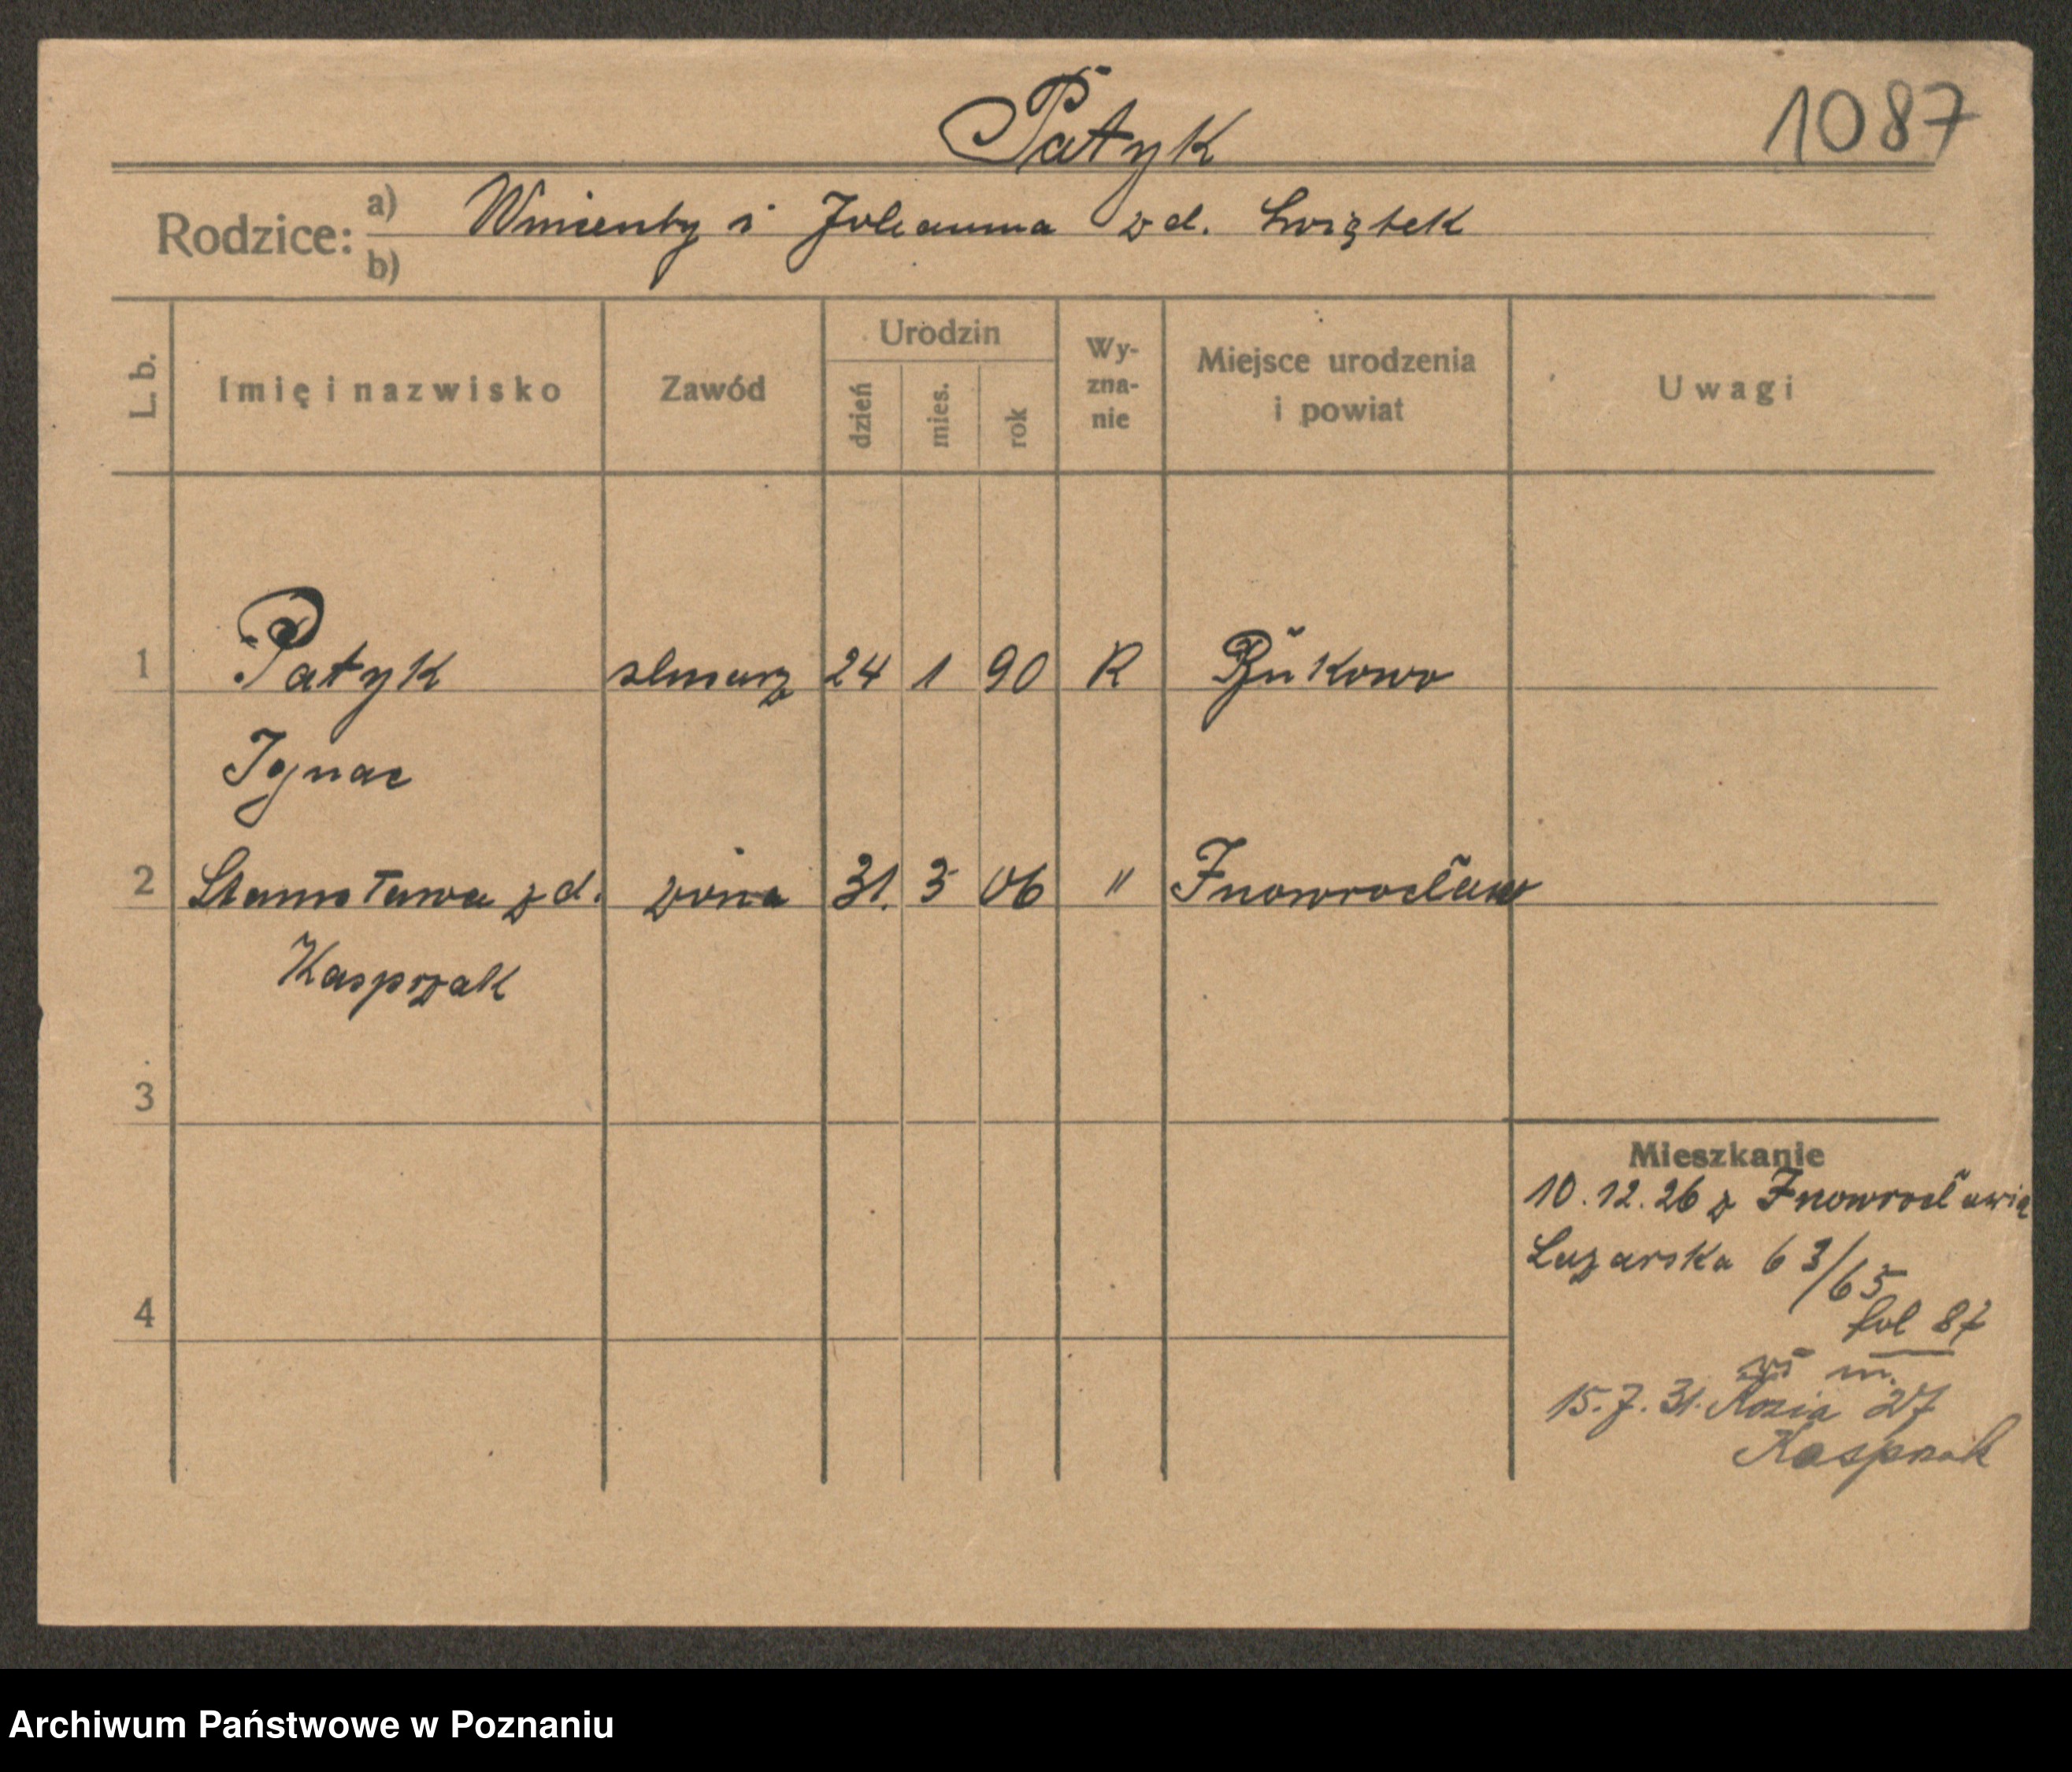 Patyk
1087
Rodzice: a) Wincenty i Julianna z d. Swiątek
b)
L. b.
Imię i nazwisko
Zawód
Urodzin
dzień
mies.
rok
Wy-
zna-
nie
Miejsce urodzenia
i powiat
Uwagi
1 Patyk 24 1 90 R Bukowo
Ignac
2 Stanisława z d. żona 31. 3 06 " Inowrocław
Kasprzak
3
4
Mieszkanie
10.12.26 z Inowrocławia
Łazarska 63/65
fol 87
15.7.31. Kozia 27
Kasprzak
Archiwum Państwowe w Poznaniu